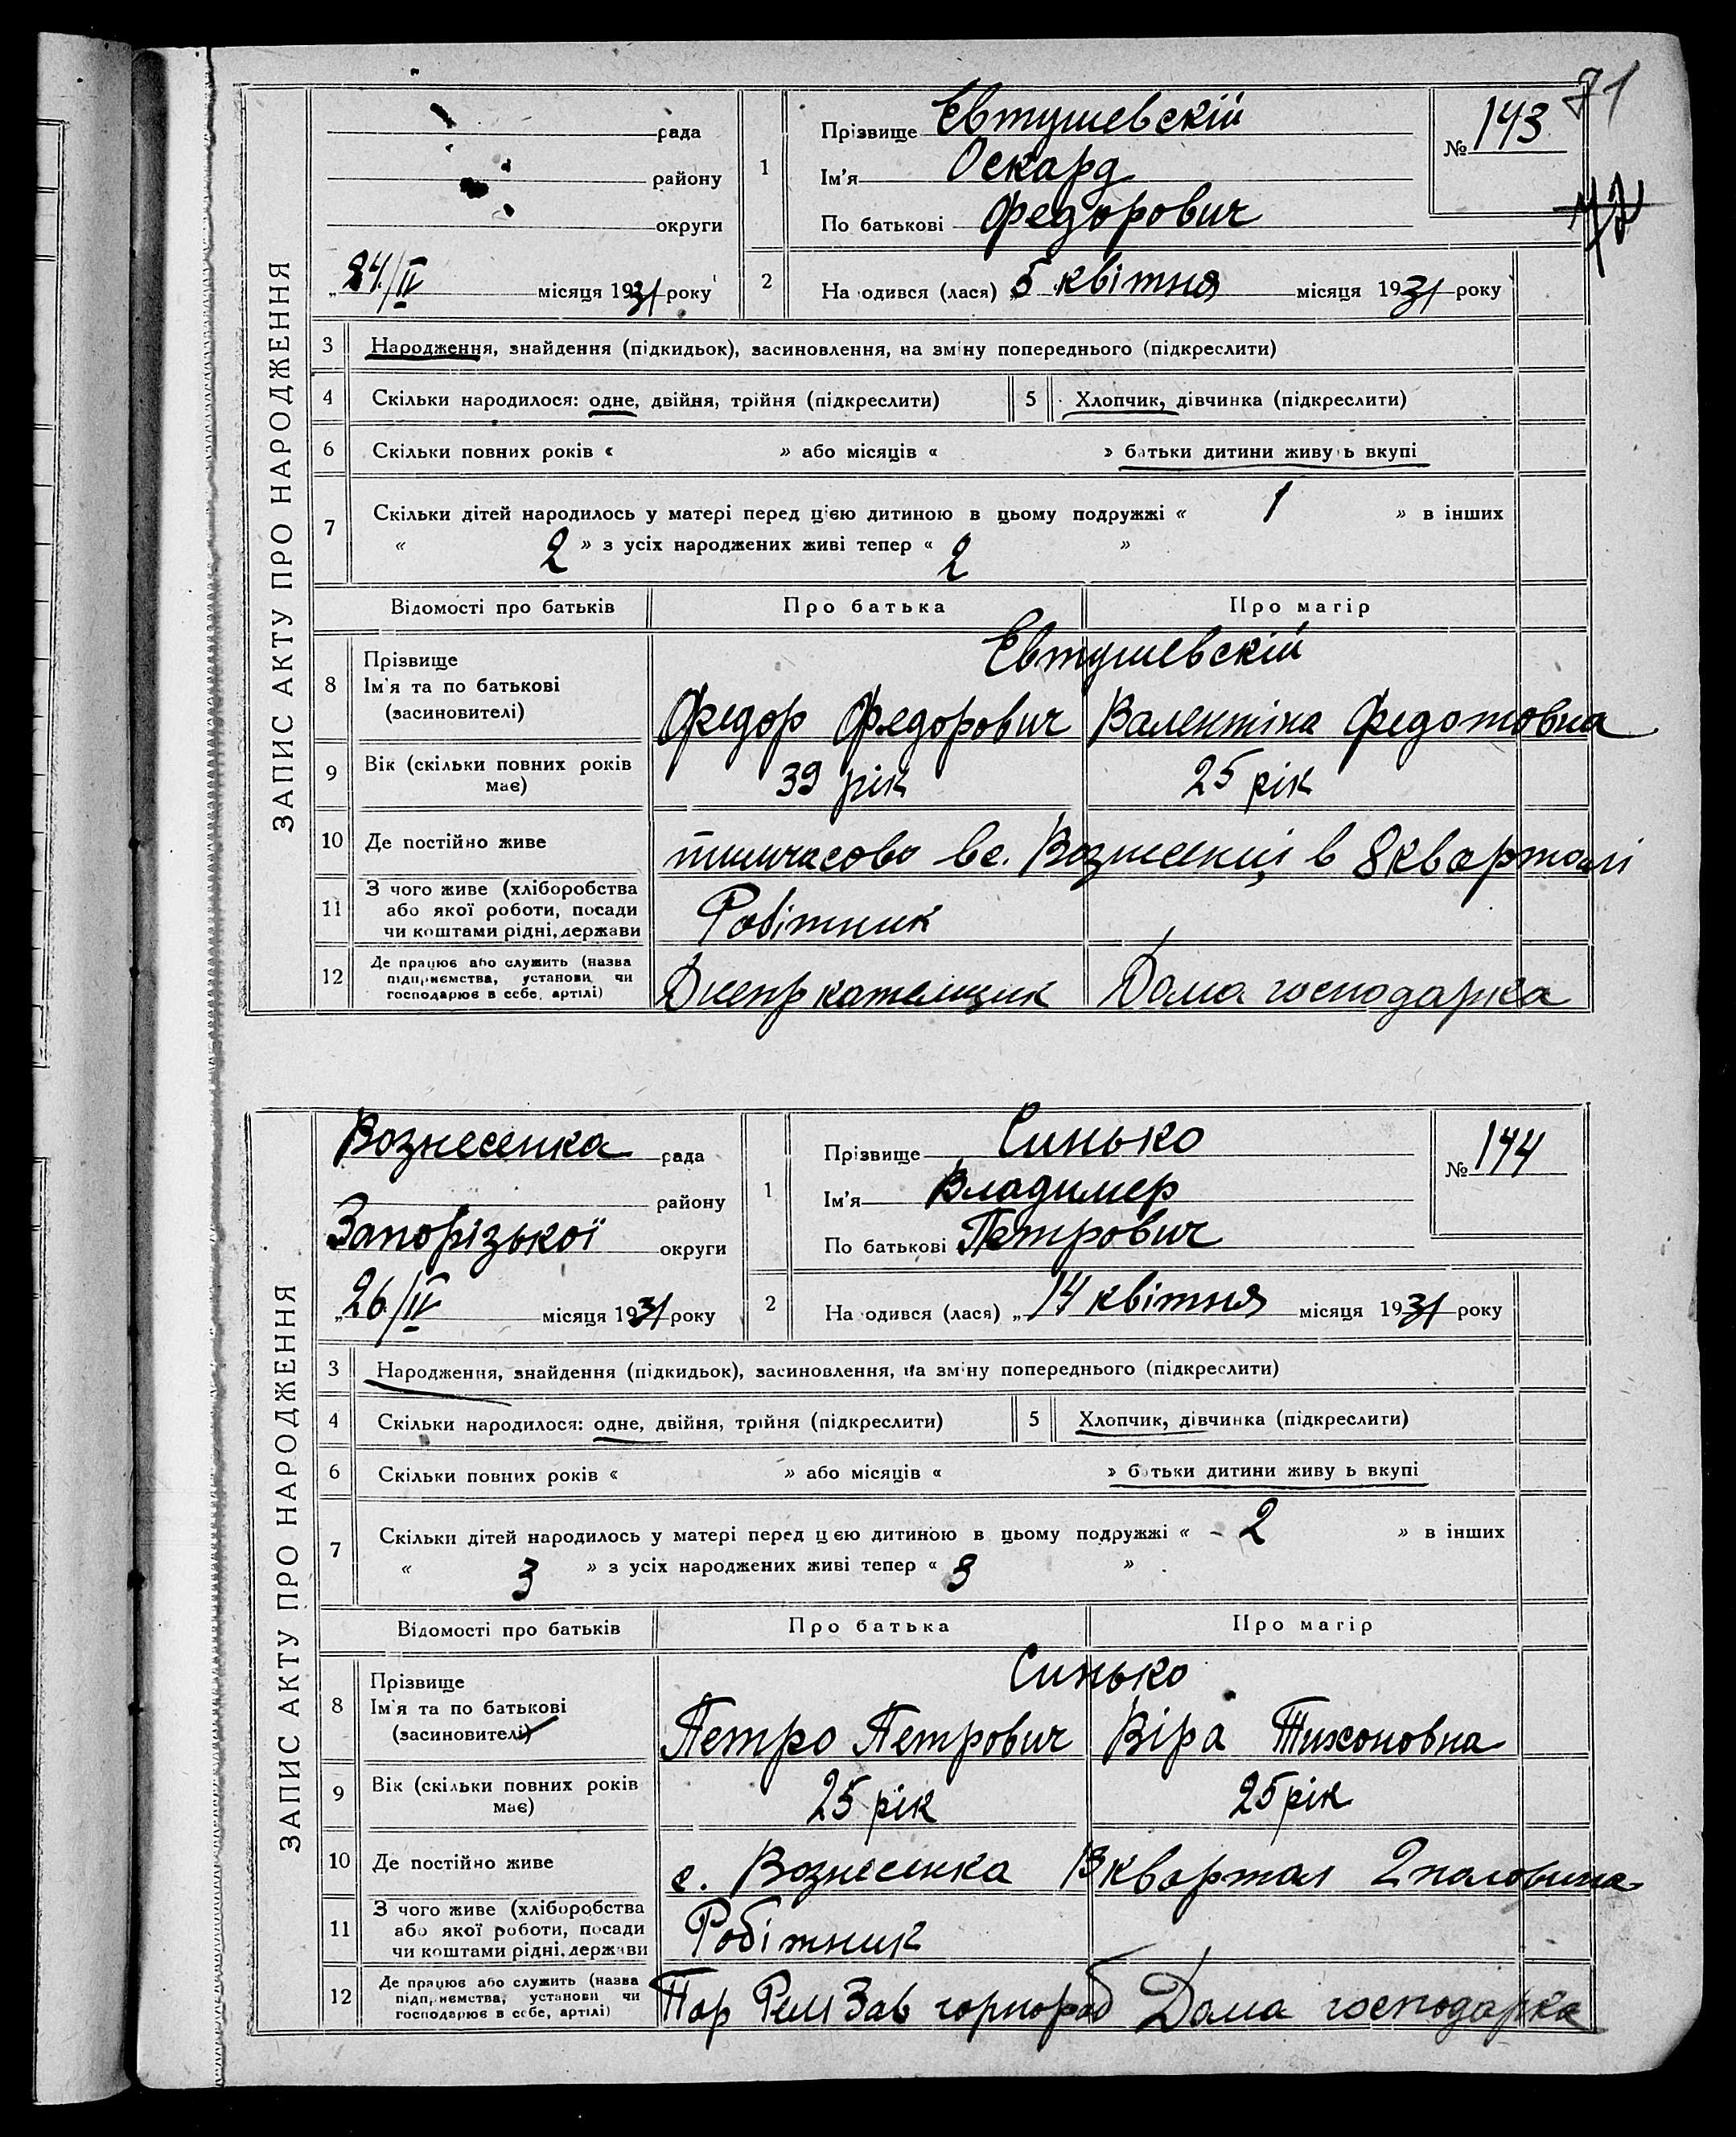 71
ЗАПИС АКТУ ПРО НАРОДЖЕННЯ
рада
району
округи
„24/IV місяця 1931 року
1 Прізвище Евтушевскій
Ім'я Оскард
По батькові Федорович
№ 143
2 На одився (лася) „5 квітня місяця 1931 року
3 Народження, знайдення (підкидьок), засиновлення, на зміну попереднього (підкреслити)
4 Скільки народилося: одне, двійня, трійня (підкреслити) 5 Хлопчик, дівчинка (підкреслити)
6 Скільки повних років « » або місяців « » батьки дитини живу ь вкупі
7 Скільки дітей народилось у матері перед цією дитиною в цьому подружжі « 1 » в інших
« 2 » з усіх народжених живі тепер « 2 »
Відомості про батьків Про батька Про матір
8 Прізвище Евтушевскій
Ім'я та по батькові
(засиновителі) Федор Федорович Валентіна Федотовна
9 Вік (скільки повних років
має) 39 рік 25 рік
10 Де постійно живе тимчасово в с. Вознесенці в 8 кварталі
11 З чого живе (хліборобства
або якої роботи, посади
чи коштами рідні, держави Робітник
12 Де працює або служить (назва
підприємства, установи чи
господарює в себе, артілі) Днепр Дома господарка
ЗАПИС АКТУ ПРО НАРОДЖЕННЯ
Вознесенка рада
району
Запорізької округи
„26/IV місяця 1931 року
1 Прізвище Синько
Ім'я Владимер
По батькові Петрович
№ 144
2 На одився (лася) „14 квітня місяця 1931 року
3 Народження, знайдення (підкидьок), засиновлення, на зміну попереднього (підкреслити)
4 Скільки народилося: одне, двійня, трійня (підкреслити) 5 Хлопчик, дівчинка (підкреслити)
6 Скільки повних років « » або місяців « » батьки дитини живу ь вкупі
7 Скільки дітей народилось у матері перед цією дитиною в цьому подружжі « - 2 » в інших
« 3 » з усіх народжених живі тепер « 3 »
Відомості про батьків Про батька Про матір
8 Прізвище Синько
Ім'я та по батькові
(засиновителі) Петро Петрович Віра Тихоновна
9 Вік (скільки повних років
має) 25 рік 25 рік
10 Де постійно живе с. Вознесенка 3 квартал 2 половина
11 З чого живе (хліборобства
або якої роботи, посади
чи коштами рідні, держави Робітник
12 Де працює або служить (назва
підприємства, установи чи
господарює в себе, артілі) Пар Рем Зав Дома господарка